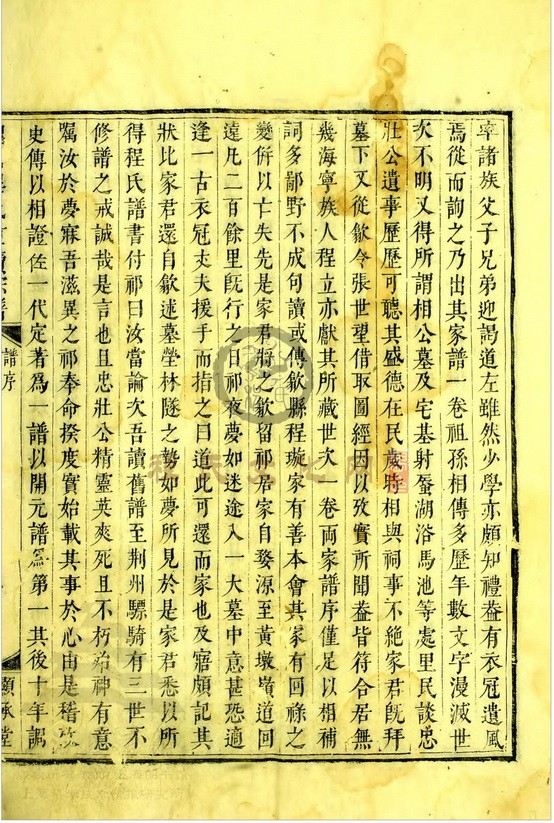 率諸族父子兄弟迎謁道左雖然少學亦頗知禮葢有衣冠遺風
焉從而詢之乃出其家譜一卷祖孫相傳多歷年數文字漫滅世
次不明又得所謂相公墓及宅基射蜃湖浴馬池等處里民談忠
壯公遺事歷歷可聽其盛德在民歲時相與祠事不絕家君旣拜
墓下又從歙令張世望借取圖經因以攷實所聞葢皆符合居無
幾海寧族人程立亦獻其所藏世次一卷兩家譜序僅足以相補
詞多鄙野不成句讀或傳歙縣程璇家有善本會其家有回祿之
變倂以亡失先是家君將之歙留祁居家自婺源至黃墩嶺道回
遠凡二百餘里旣行之日祁夜夢如迷途入一大墓中意甚恐適
逢一古衣冠丈夫援手而指之曰道此可還而家也及寤頗記其
狀比家君還自歙述墓塋林隧之勢如夢所見於是家君悉以所
得程氏譜書付祁曰汝當論次吾讀舊譜至荆州驃騎有三世不
修譜之戒誠哉是言也且忠壯公精靈英爽死且不朽殆神有意
囑汝於夢寐吾滋異之祁奉命揆度實始載其事於心由是稽攷
史傳以相證佐一代定著爲一譜以開元譜爲第一其後十年調
譜序
顯承堂